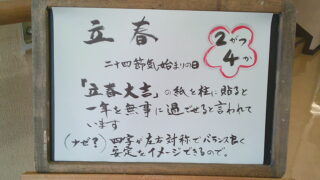 立春
2がつ
4か
二十四節気、始まりの日
「立春大吉」の紙を柱に貼ると
一年を無事に過ごせると言われて
います
(なぜ?) 四字が左右対称でバランス良く
安定をイメージできるので。